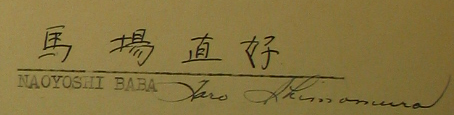 馬場直好
NAOYOSHI BABA Taro Shimomura